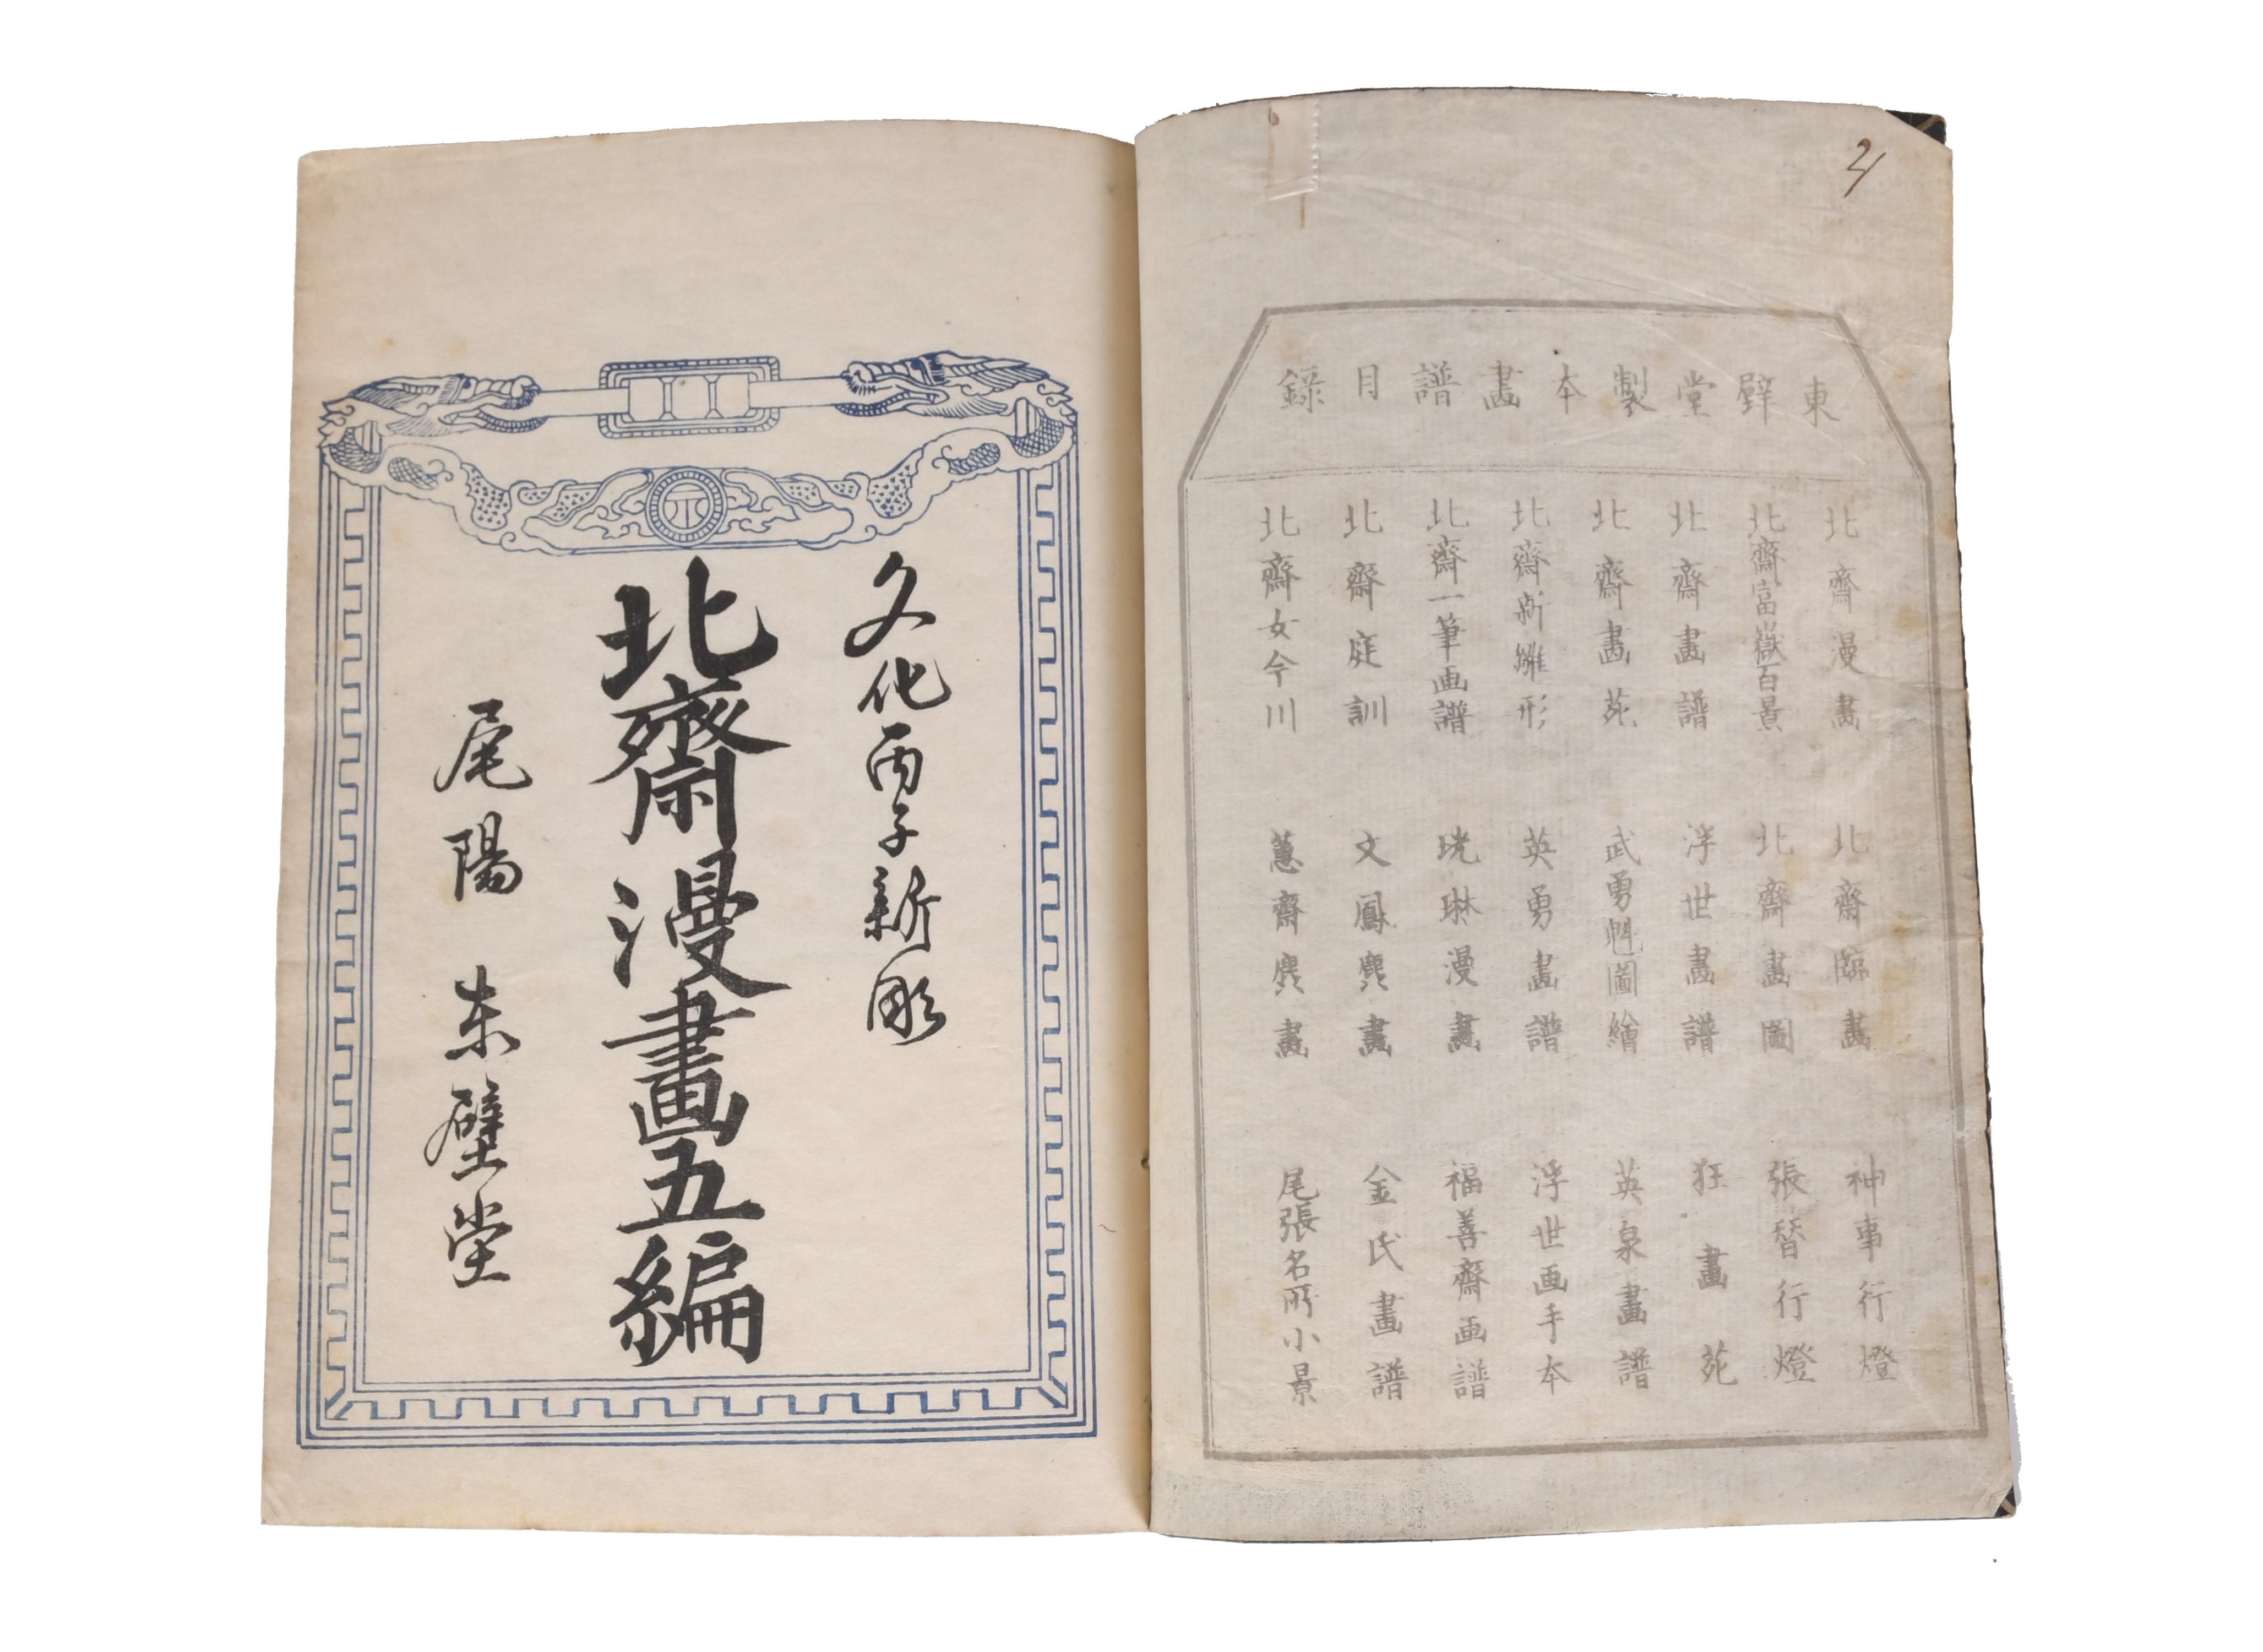 東壁堂製本畫譜目錄
北齋漫畫
北齋富嶽百景
北齋畫譜
北齋畫苑
北齋新雛形
北齋一筆画譜
北齋庭訓
北齋女今川
北齋臨畫
北齋畫圖
浮世畫譜
武勇魁圖繪
英勇畫譜
光琳漫畫
文鳳麁畫
蕙齋麁畫
神事行燈
張替行燈
狂畫苑
英泉畫譜
浮世画手本
福善齋画譜
金氏畫譜
尾張名所小景
文化丙子新彫
北齋漫畫五編
尾陽 東壁堂